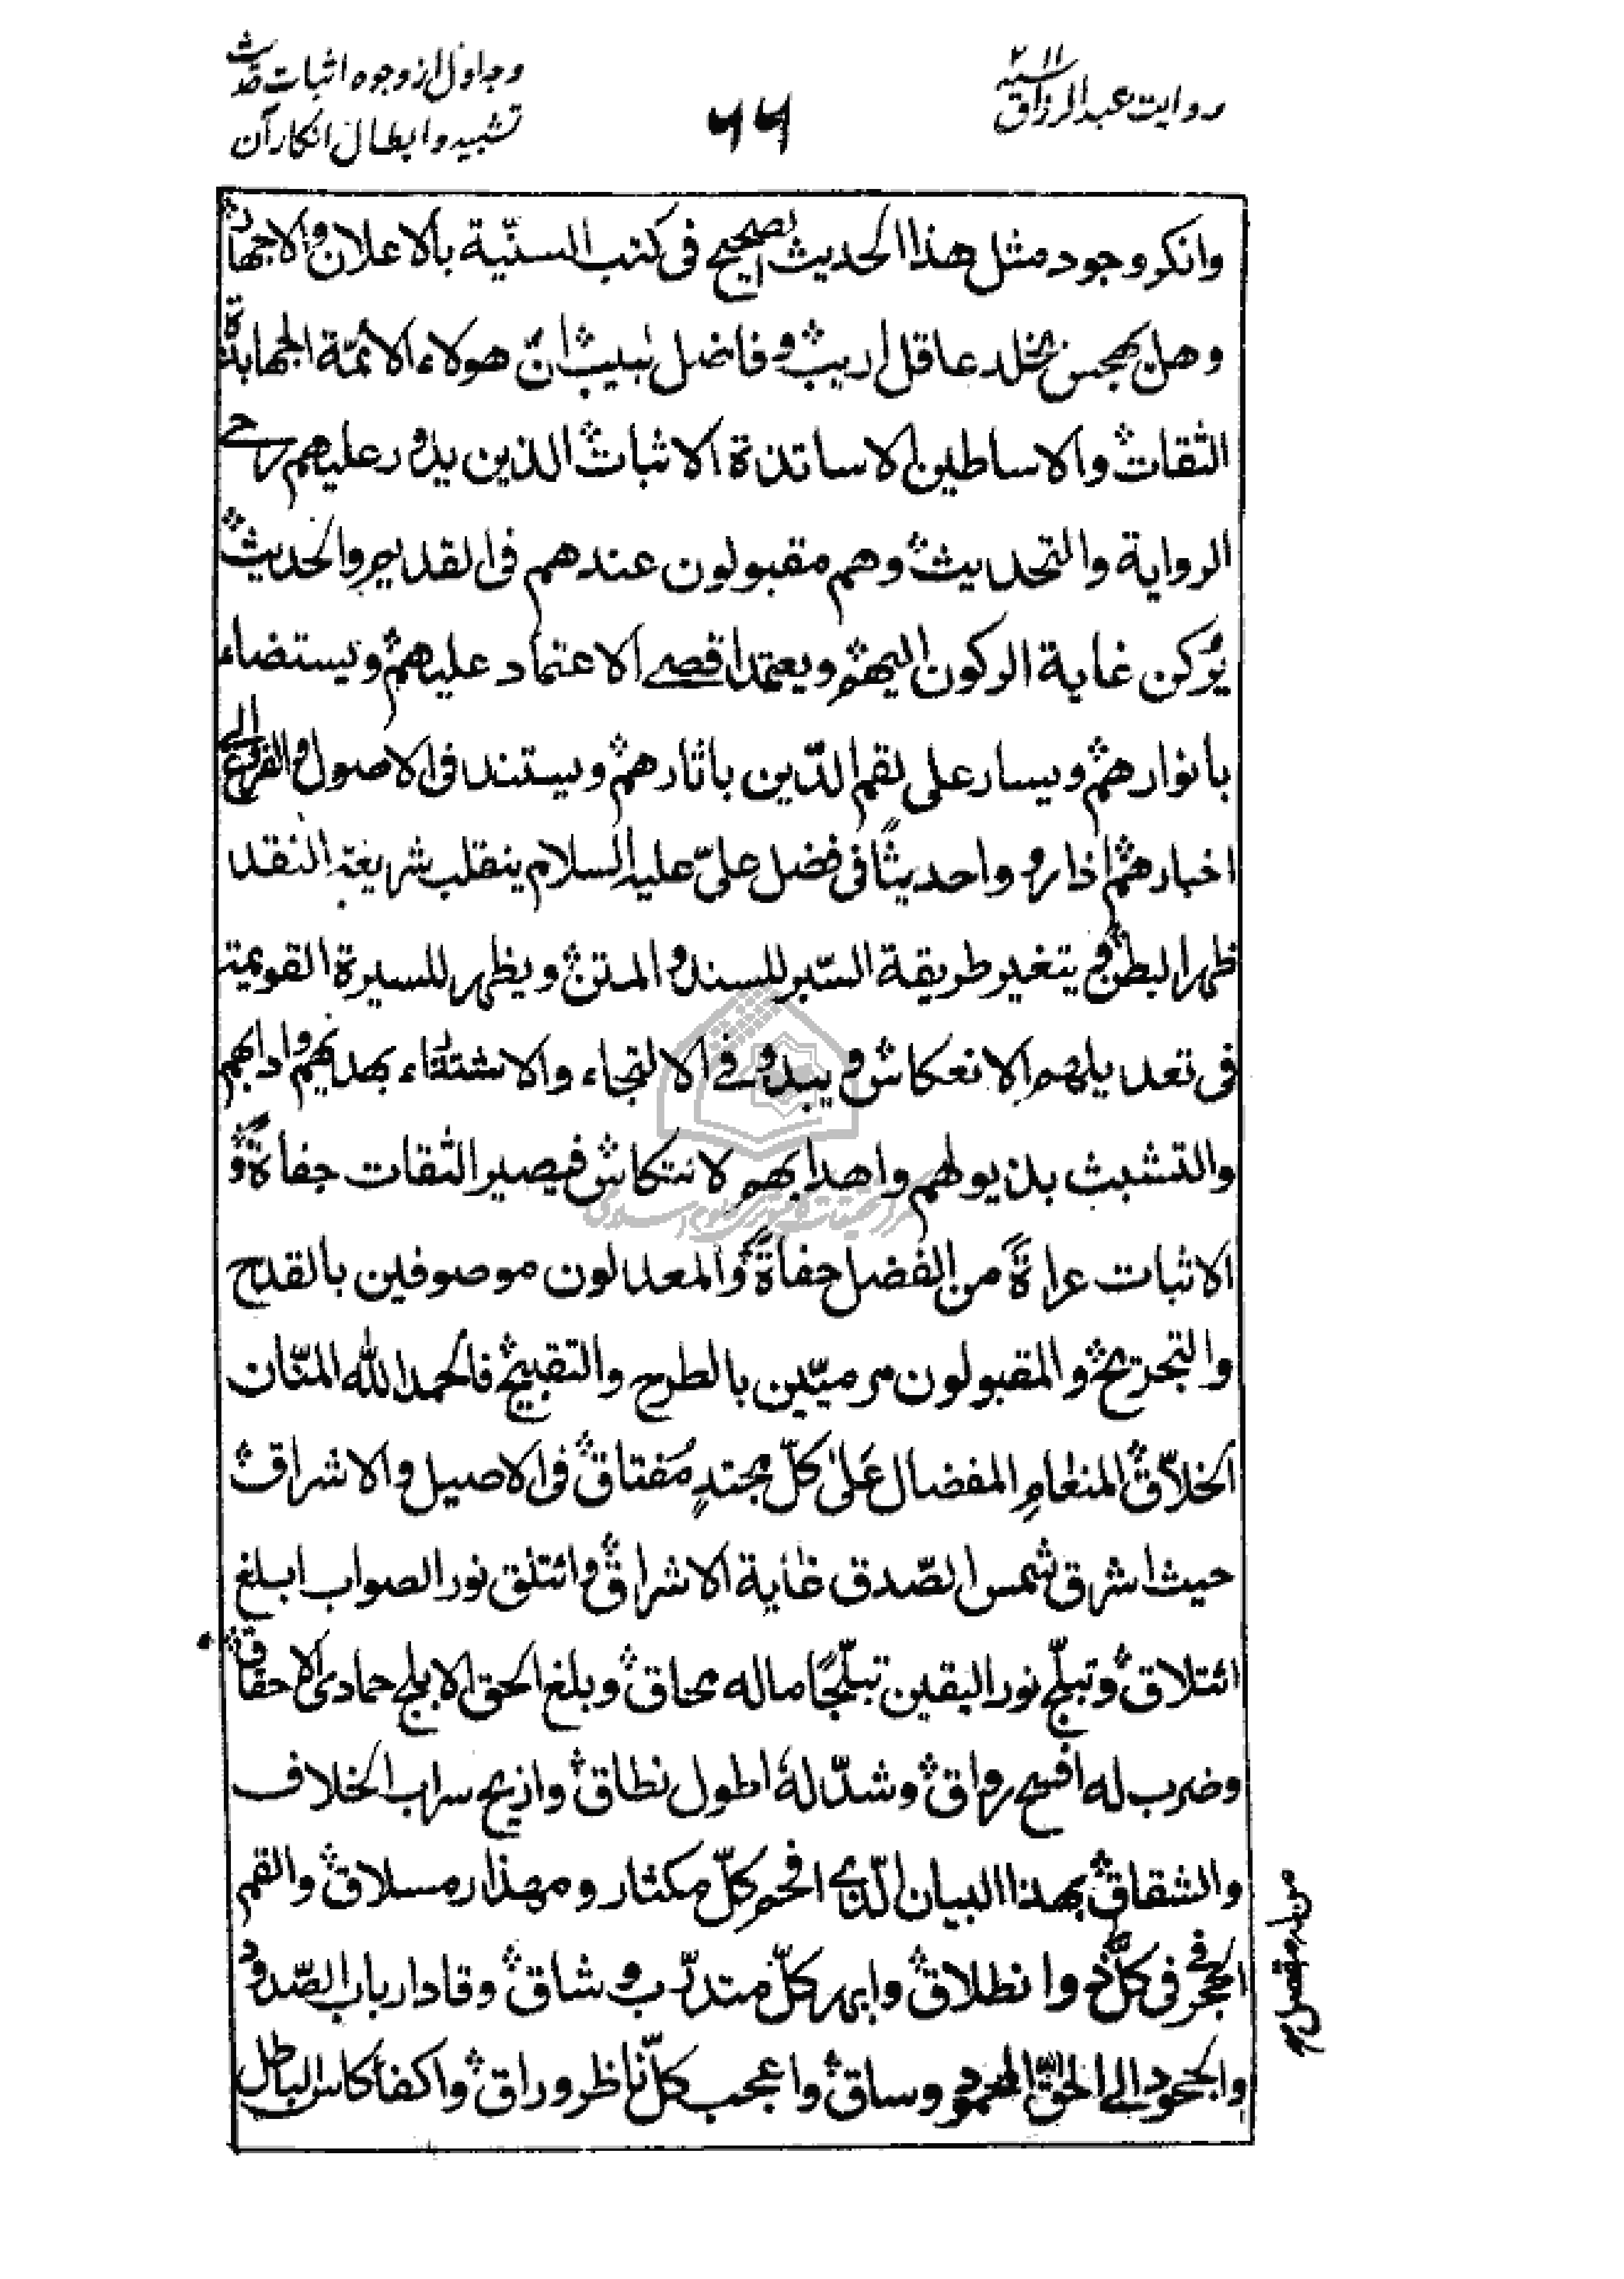 روایت عبدالرزاق سنه ۲۱۱
۶۶
وجه اول از وجوه اثبات حدیث
تشبیه و ابطال انکار آن
وانکر وجود مثل هذا الحدیث الصحیح فی کتب السنّیة بالاعلان والاجهار
وهل یهجس بخلد عاقل اریب وفاضل لبیب انّ هولاء الائمّة الجهابذة
الثقات والاساطین الاساتذة الاثبات الذین یدور علیهم رحی
الروایة والتحدیث وهم مقبولون عندهم فی القدیم والحدیث
یُرکن غایة الرکون الیهم ویعتمد اقصی الاعتماد علیهم ویستضاء
بانوارهم ویسار علی لقم الدّین باثارهم ویستند فی الاصول والفروع الی
اخبارهم اذا رووا حدیثًا فی فضل علیّ علیه السلام ینقلب شریعة النقد
ظهرا لبطن ویتغیر طریقة السّبر للسند والمتن ویظهر للسیرة القویمة
فی تعدیلهم الانعکاس ویبدو فی الالتجاء والانتماء بهدیهم وادابهم
والتشبث بذیولهم واهدابهم لانتکاس فیصیر الثقات جفاةً و
الاثبات عراةً من الفضل حفاةً والمعدلون موصوفین بالقدح
والتجریح والمقبولون مرمیّین بالطرح والتقبیح فالحمد لله المنّان
الخلّاق المنعامِ المفضال عَلیٰ کلّ مجتدٍ مُفتاق فی الاصیل والاشراق
حیث اشرق شمس الصّدق غایة الاشراق وائتلق نور الصواب ابلغ
ائتلاق وتبلّج نور الیقین تبلّجًا ماله محاق وبلغ الحق الابلج حمادی الاحقاق
وضرب له افسح رواق وشدّ لهٗ اطول نطاق وازیح سراب الخلاف
والشقاق بهذا البیان الّذی افحم کلّ مکثار ومهذار مسلاق والقم
الحجر فی فی کلّ وانطلاق وابهر کلّ متدرّب وشاق وقاد ارباب الصّدود
والجحود الی الحقّ المحمود وساق واعجب کلّ ناظر وراق واکفأ کاس الباطل